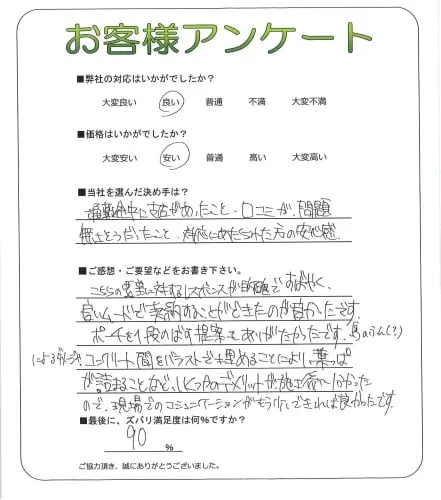 お客様アンケート
■弊社の対応はいかがでしたか?
大変良い 良い 普通 不満 大変不満
■価格はいかがでしたか?
大変安い 安い 普通 高い 大変高い
■当社を選んだ決め手は?
通勤途中に お店があったこと・口コミが、問題
無さそうだったこと・対応にあたられた方の安心感
■ご感想・ご要望などをお書き下さい。
こちらの要望に対するレスポンスが的確ですばやく、
良いムードで契約することができたのが良かったです
ポーチを1段のばす提案もありがたかったです。鳥のふん(?)
による コンクリート間をバラストで埋めることにより、葉っぱ
が詰まることなど、いくつかのデメリットが施工後に分かった
ので、現場でのコミュニケーションがもう少しできれば良かったです。
■最後に、ズバリ満足度は何%ですか?
90
%
ご協力頂き、誠にありがとうございました。